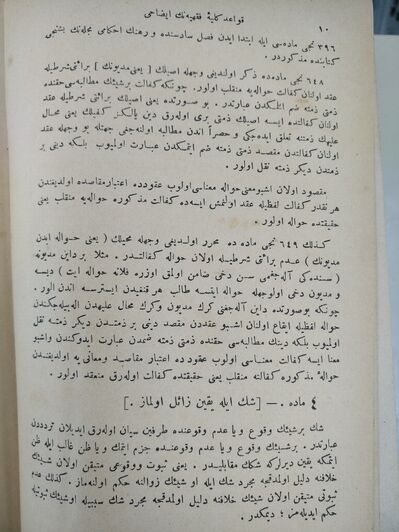 ١٠ قواعد كليهٔ فقهيه‌نك ايضاحى
٣٩٦ نجى ماده‌سى ايله ابتدا ايدن فصل سادسنده و رهنك احكامى مجله‌نك بشنجى
كتابنده مذكوردر .
٦٤٨ نجى ماده‌ده ذكر اولنديغى وجهله اصيلك [ يعنى مديونك ] برائتى شرطيله
عقد اولنان كفالت حواله‌يه منقلب اولور. چونكه كفالت برشيئك مطالبه‌سى حقنده
ذمتى ذمته ضم ايتمكدن عبارتدر . بو صورتده يعنى اصيلك برائتى شرطيله عقد
اولنان كفالتده ايسه اصيلك ذمتى برى اوله‌رق دين يالكز كفيلك يعنى محال
عليهك ذمتنه تعلق ايده‌جكى و حصراً اندن مطالبه اولنه‌جغى جهتله بو وجهله عقد
اولنان كفالتدن مقصد ذمتى ذمته ضم ايتمكدن عبارت اولميوب بلكه دينى بر
ذمتدن ديكر ذمته نقل اولور .
مقصود اولان اشبو معنى حواله معناسى اولوب عقودده اعتبار مقاصده اولديغندن
هر نقدر كفالت لفظيله عقد اولنمش ايسه‌ده كفالت مذكوره حواله‌يه منقلب يعنى
حقيقتده حواله اولور .
كذلك ٦٤٩ نجى ماده ده محرر اولديغى وجهله محيلك ( يعنى حواله ايدن
مديونك ) عدم برائتى شرطيله اولان حواله كفالتدر . مثلا بر داين مديونه
( سنده‌كى آله‌جغمى سن دخى ضامن اولمق اوزره فلانه حواله ايت ) ديسه
و مديون دخى اولوجهله حواله ايتسه طالب هر قنغيدن ايسترسه اندن الور .
چونكه بوصورتده داين آله‌جغنى كرك مديون وكرك محال عليهدن اله‌بيله‌جكندن
حواله لفظيله ايقاع اولنان اشبو عقددن مقصد دينى بر ذمتدن ديكر ذمته نقل
اولميوب بلكه دينك مطالبه‌سى حقنده ذمتى ذمته ضمدن عبارت ايدوكندن واشبو
معنا ايسه كفالت معناسى اولوب عقودده اعتبار مقاصد ومعانى يه اولديغندن
حوالهٔ مذكوره كفالته منقلب يعنى حقيقتده كفالت اوله‌رق منعقد اولور .
٤ ماده . — [ شك ايله يقين زائل اولماز . ]
شك برشيئك وقوع و يا عدم وقوعنده طرفين سيان اوله‌رق ايديلان تردددن
عبارتدر . برشيئك وقوع ويا عدم وقوعنده جزم ايتمك ويا ظن غالب ايله ظن
ايتمكه يقين ديرلركه شكك مقابليدر . يعنى ثبوت ووقوعى متيقن اولان شيئك
خلافنه دليل اولمدقجه مجرد شك ايله او شيئك زوالنه حكم اولنه‌ماز . كذلك عدم
ثبوتى متيقن اولان شيئك خلافنه دليل اولمدقجه مجرد شك سببيله اوشيئك ثبوتنه
حكم ايديله‌مز ؛ ديمكدر .